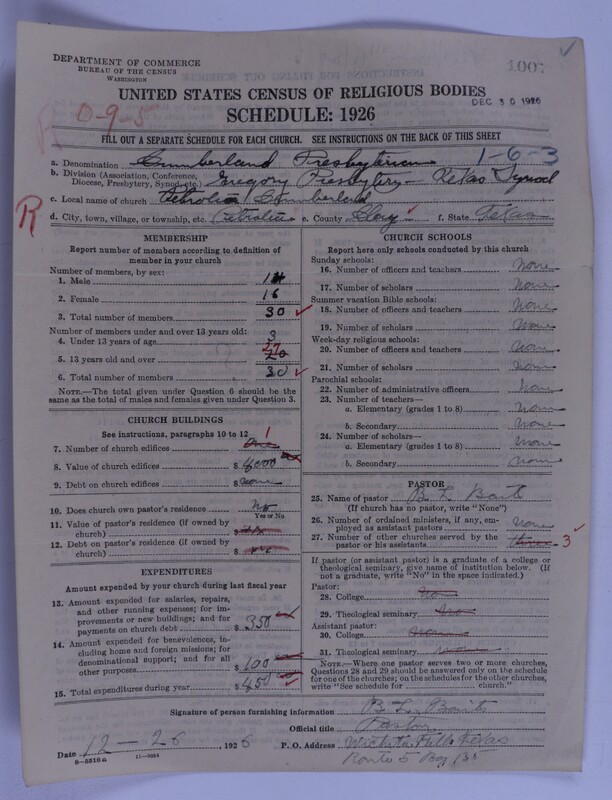 DEPARTMENT OF COMMERCE
BUREAU OF THE CENSUS
WASHINGTON
1007
UNITED STATES CENSUS OF RELIGIOUS BODIES
DEC 30 1926
SCHEDULE: 1926
0-9-5
FILL OUT A SEPARATE SCHEDULE FOR EACH CHURCH. SEE INSTRUCTIONS ON THE BACK OF THIS SHEET
a. Denomination Cumberland Presbyterian 1-6-3
b. Division (Association, Conference, Diocese, Presbytery, Synod, etc.) Gregory Presbytery - Texas Synod
c. Local name of church Petrolia Cumberland
R
d. City, town, village, or township, etc. Petrolia e. County Clay f. State Texas
MEMBERSHIP
Report number of members according to definition of member in your church
Number of members, by sex:
1. Male 14
2. Female 16
3. Total number of members 30
Number of members under and over 13 years old:
4. Under 13 years of age 3
5. 13 years old and over 27
6. Total number of members 30
NOTE.—The total given under Question 6 should be the same as the total of males and females given under Question 3.
CHURCH BUILDINGS
See instructions, paragraphs 10 to 12
7. Number of church edifices one 1
8. Value of church edifices $ 4000
9. Debt on church edifices $ none
10. Does church own pastor's residence? No
Yes or No
11. Value of pastor's residence (if owned by church) $
12. Debt on pastor's residence (if owned by church) $
EXPENDITURES
Amount expended by your church during last fiscal year
13. Amount expended for salaries, repairs, and other running expenses; for improvements or new buildings; and for payments on church debt $ 350
14. Amount expended for benevolences, including home and foreign missions; for denominational support; and for all other purposes $ 100
15. Total expenditures during year $ 450
CHURCH SCHOOLS
Report here only schools conducted by this church
Sunday schools:
16. Number of officers and teachers None
17. Number of scholars None
Summer vacation Bible schools:
18. Number of officers and teachers None
19. Number of scholars None
Week-day religious schools:
20. Number of officers and teachers None
21. Number of scholars None
Parochial schools:
22. Number of administrative officers None
23. Number of teachers—
a. Elementary (grades 1 to 8) None
b. Secondary None
24. Number of scholars—
a. Elementary (grades 1 to 8) None
b. Secondary None
PASTOR
25. Name of pastor B L Baits
(If church has no pastor, write "None")
26. Number of ordained ministers, if any, employed as assistant pastors None
27. Number of other churches served by the pastor or his assistants three 3
If pastor (or assistant pastor) is a graduate of a college or theological seminary, give name of institution below. (If not a graduate, write "No" in the space indicated.)
Pastor:
28. College No
29. Theological seminary No
Assistant pastor:
30. College None
31. Theological seminary None
NOTE.—Where one pastor serves two or more churches, Questions 28 and 29 should be answered only on the schedule for one of the churches; on the schedules for the other churches, write "See schedule for church."
Signature of person furnishing information B L Baits
Official title Pastor
Date 12-26 1926 P. O. Address Wichita Falls Texas
Route 5 Box 135
8-5518a
11-9054